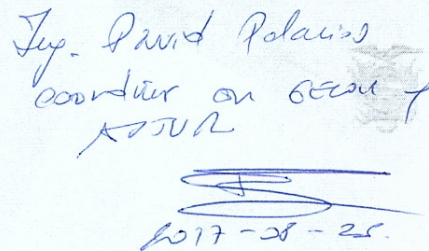 Ing. David Palacios
coordinar con GECOM y
ASJUR
2017-08-25.